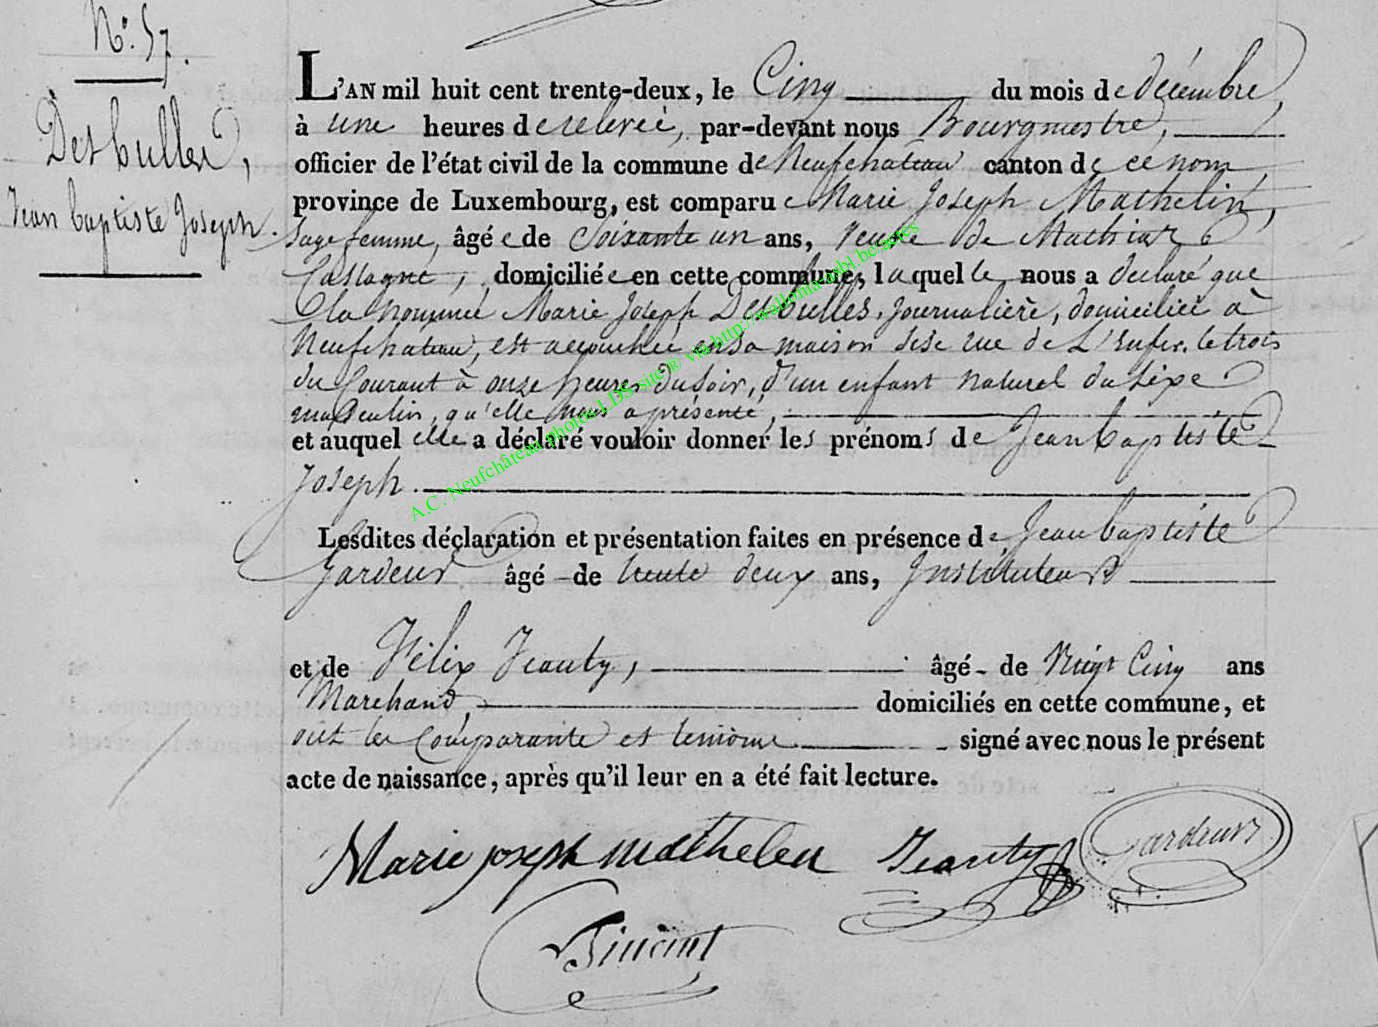 N.° 57.
Desbulles,
Jean baptiste Joseph.
L'AN mil huit cent trente-deux, le Cinq du mois de décembre,
à une heures de relevée, par-devant nous Bourgmestre,
officier de l'état civil de la commune de Neufchateau canton de ce nom
province de Luxembourg, est comparue Marie Joseph Mathelin,
Sage femme, âgée de Soixante un ans, veuve de Mathias
Castagne, domiciliée en cette commune, laquelle nous a declaré que
la nommée Marie Joseph Desbulles, journalière, domiciliée à
Neufchateau, est accouchée en sa maison sise rue de L'Enfer, le trois
du Courant à onze heures du soir, d'un enfant naturel du sexe
masculin, qu'elle nous a présenté,
et auquel elle a déclaré vouloir donner les prénoms de Jean baptiste
Joseph.
Lesdites déclaration et présentation faites en présence de Jean baptiste
Gardeur âgé de trente deux ans, Instituteur
et de Félix Jeanty, âgé de Vingt Cinq ans
Marchand, domiciliés en cette commune, et
ont les Comparante et temoins signé avec nous le présent
acte de naissance, après qu'il leur en a été fait lecture.
Marie joseph mathelen Jeanty Gardeur
Vincent
A.C. Neufchâteau photos LDS site ® via http://wallonia-asbl.be